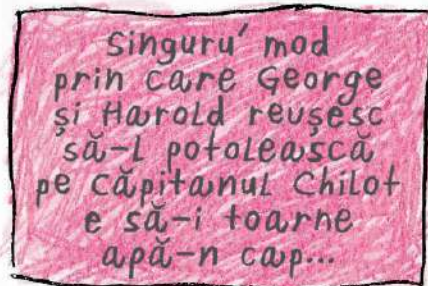 Singuru' mod
prin care George
și Harold reușesc
să-l potolească
pe Căpitanul Chilot
e să-i toarne
apă-n cap...